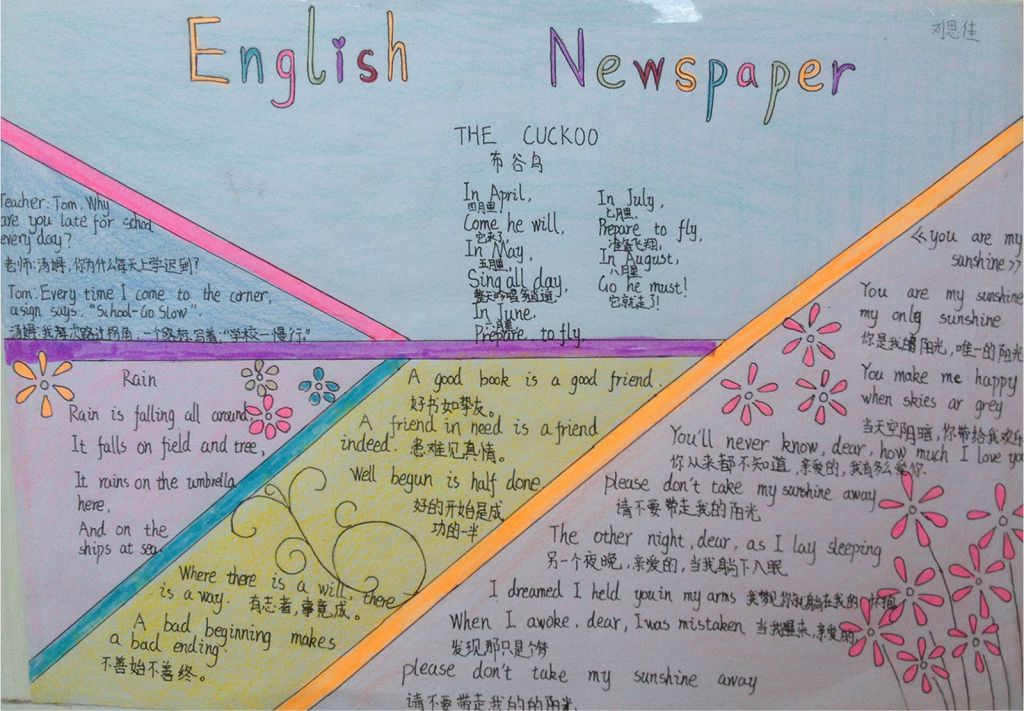 English Newspaper
刘思佳
THE CUCKOO
布谷鸟
In April,
四月里,
Come he will,
它来了,
In May,
五月里,
Sing all day,
整天吟唱多逍遥,
In June,
六月里,
Prepare to fly.
In July,
七月里,
Prepare to fly,
准备飞翔,
In August,
八月里,
Go he must!
它就走了!
Teacher: Tom, Why
are you late for school
every day?
老师:汤姆,你为什么每天上学迟到?
Tom: Every time I come to the corner,
a sign says, "School-Go Slow".
汤姆:我每次路过拐角,一个路标写着:"学校—慢行."
Rain
Rain is falling all around,
It falls on field and tree,
It rains on the umbrella
here,
And on the
ships at sea.
A good book is a good friend.
好书如挚友。
A friend in need is a friend
indeed. 患难见真情。
Well begun is half done.
好的开始是成
功的一半
Where there is a will, there
is a way. 有志者,事竟成。
A bad beginning makes
a bad ending.
不善始不善终。
《you are my
sunshine》
You are my sunshine
my only sunshine
你是我的阳光,唯一的阳光
You make me happy
when skies ar grey
当天空阴暗,你带给我欢乐
You'll never know, dear, how much I love you
你从来都不知道,亲爱的,我有多么爱你
please don't take my sunshine away
请不要带走我的阳光
The other night, dear, as I lay sleeping
另一个夜晚,亲爱的,当我躺下入眠
I dreamed I held you in my arms 我梦见你就躺在我的怀抱
When I awoke, dear, I was mistaken 当我醒来,亲爱的,
发现那只是个梦
please don't take my sunshine away
请不要带走我的的阳光